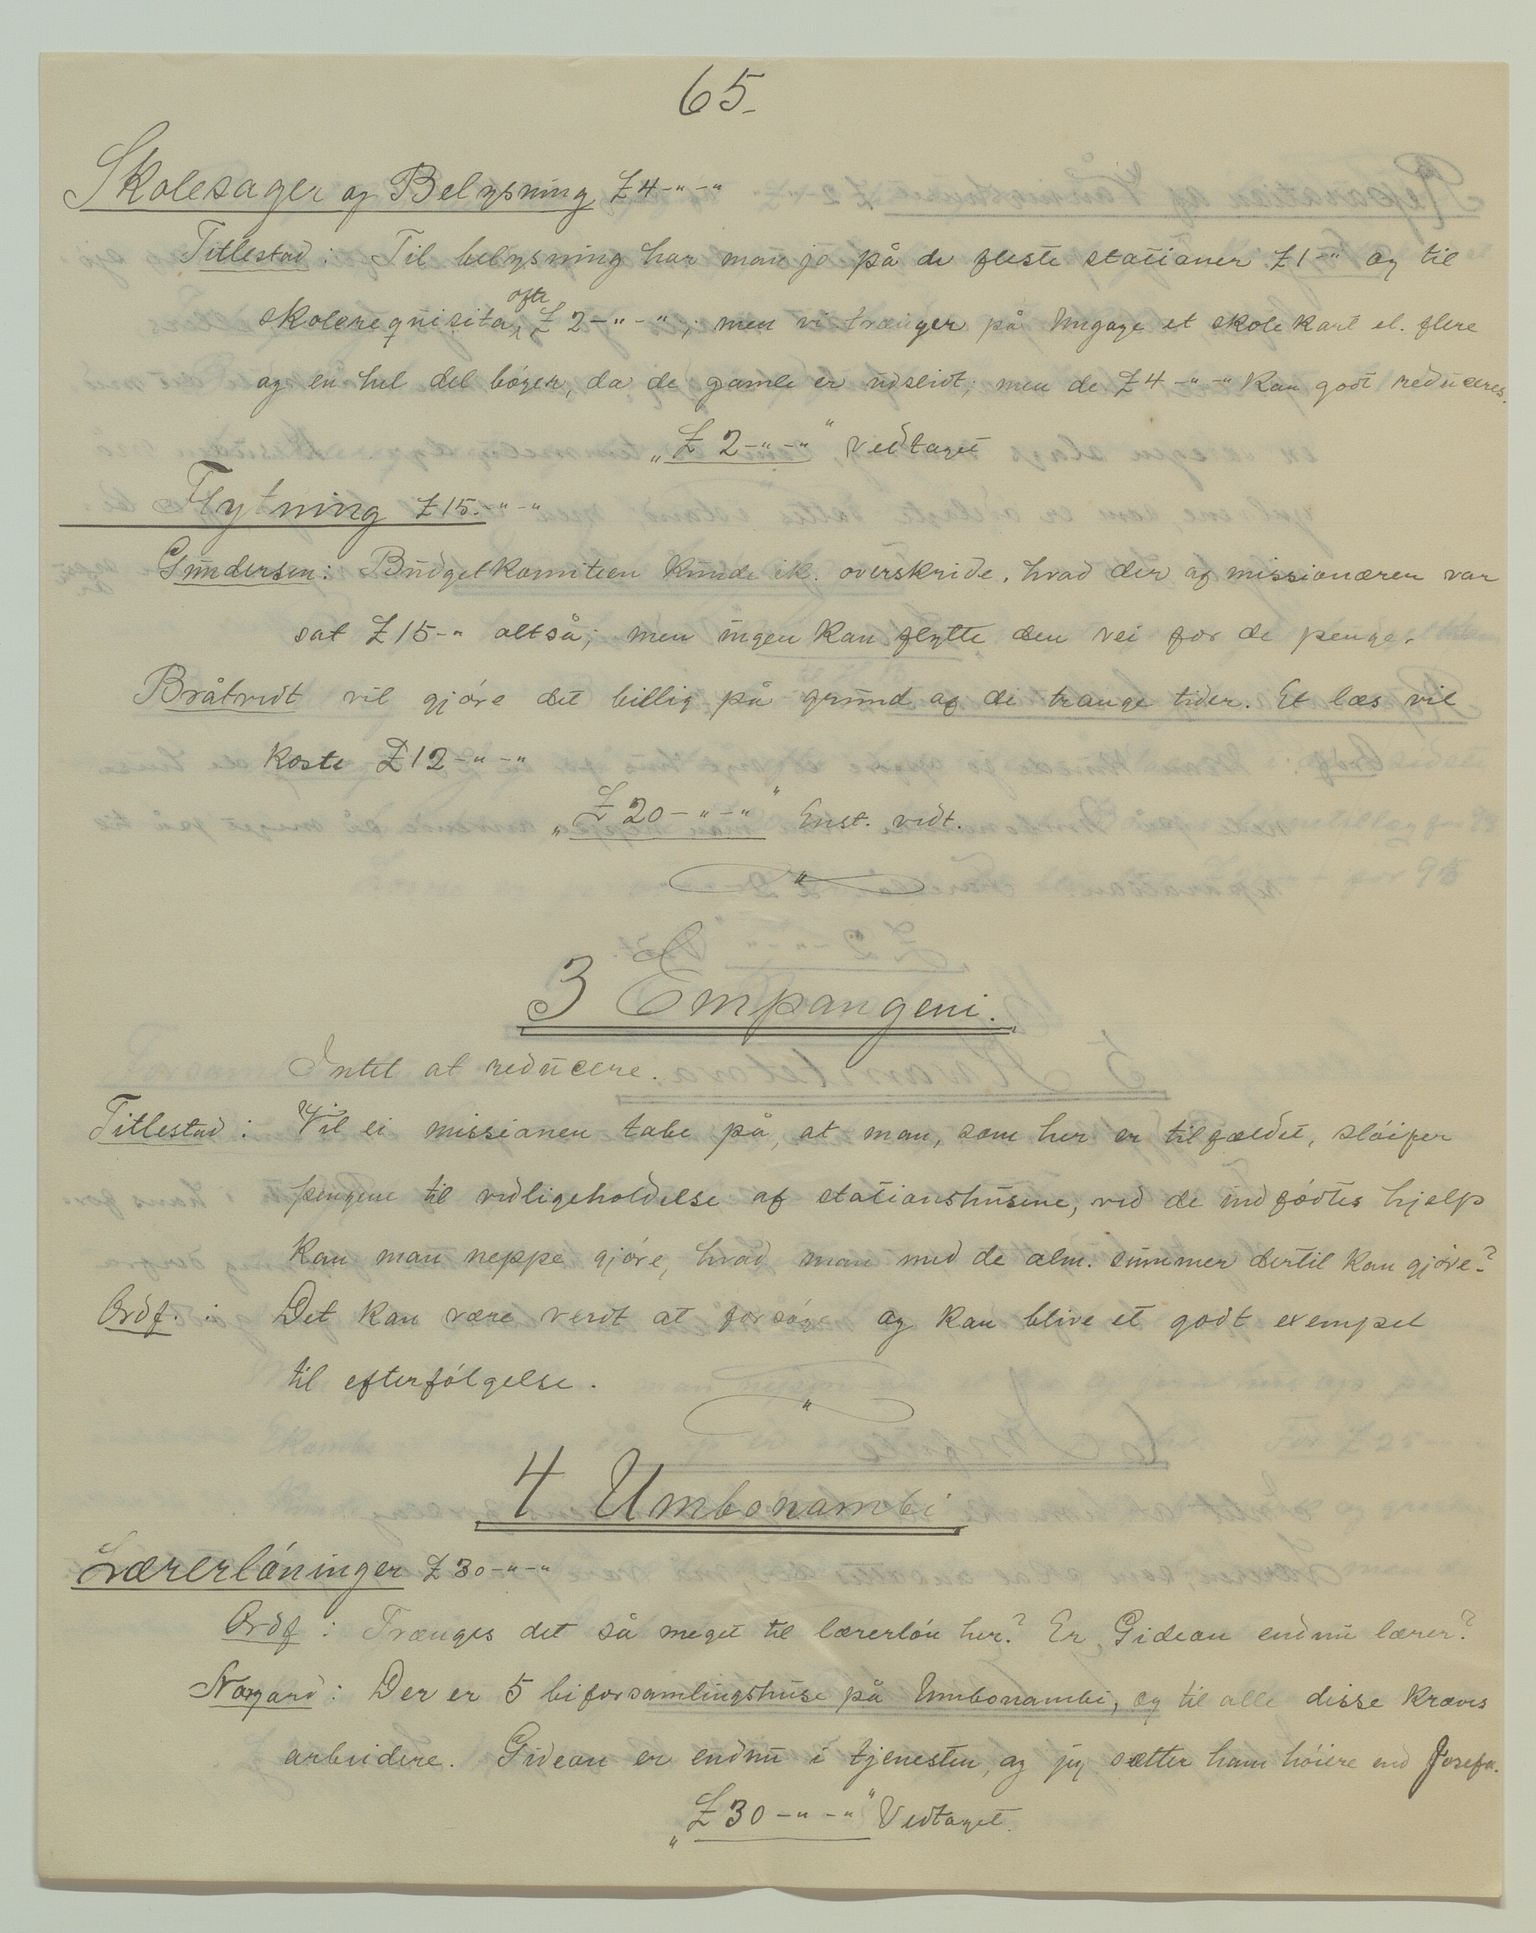 65.
Skolesager og Belysning £4-"-"
Titlestad: Til belysning har man jo på de fleste stationer £1-" og til
ofte
skolerequisita, £2-"-"; men vi trænger på Ungoye et skolekart el. flere
og en hel del bøger, da de gamle er udslidt; men de £4-"-" kan godt reduceres.
„£ 2-"-"" Vedtaget
Flytning £15.-"-"
Gundersen: Budgetkomiteen kunde ik. overskride, hvad der af missionæren var
sat £15-" altså; men ingen kan flytte den vei for de penge.
Bråtvedt vil gjøre det billig på grund af de trange tider. Et læs vil
koste £12-"-"
„£ 20-"-"" Enst. vedt.
"
3 Empangeni.
Intet at reducere.
Titlestad: Vil ei missionen tabe på, at man, som her er tilfældet, sløifer
pengene til vedligeholdelse af stationshusene, ved de indfødtes hjelp
kan man neppe gjøre, hvad man med de alm. summer dertil kan gjøre?
Ordf.: Det kan være verdt at forsøge og kan blive et godt exempel
til efterfølgelse.
"
4 Umbonambi
Lærerlöninger £30-"-"
Ordf: Trænges det så meget til lærerløn her? Er Gideon endnu lærer?
Norgard: Der er 5 biforsamlingshuse på Umbonambi, og til alle disse kræves
arbeidere. Gideon er endnu i tjenesten, og jeg sætter ham høiere end Josefa.
„£ 30-"-"" Vedtaget.